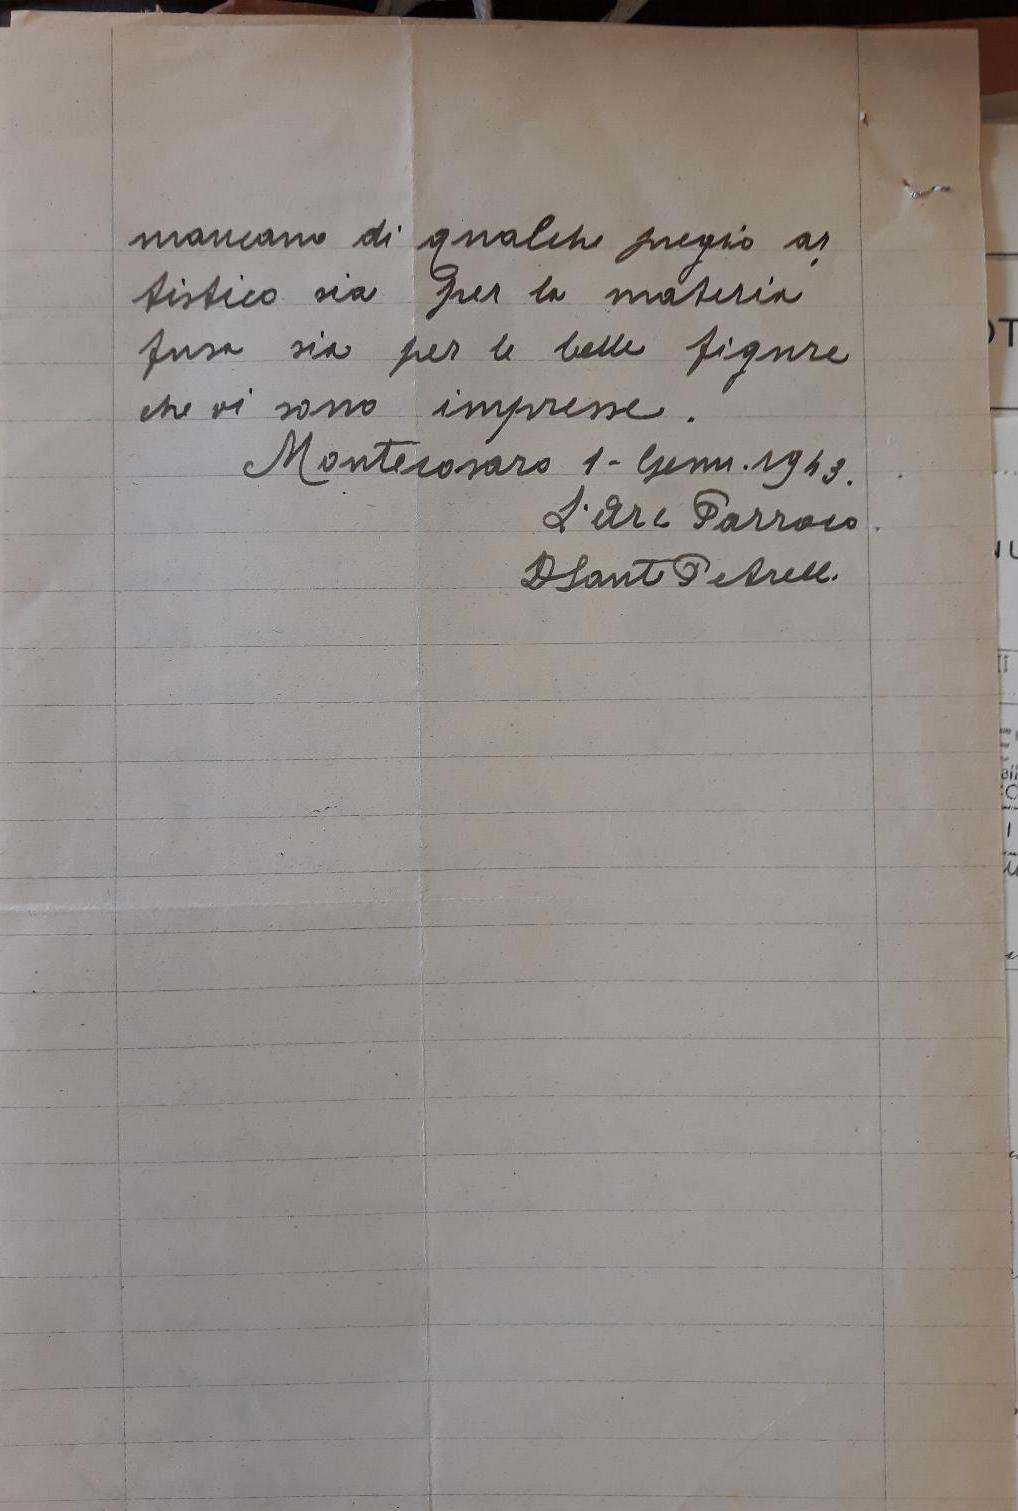 mancano di qualche pregio ar
tistico sia per la materia
fusa sia per le belle figure
che vi sono impresse.
Montecosaro 1 - Genn. 1943.
L'Arc Parroco.
D Sant Petrell.